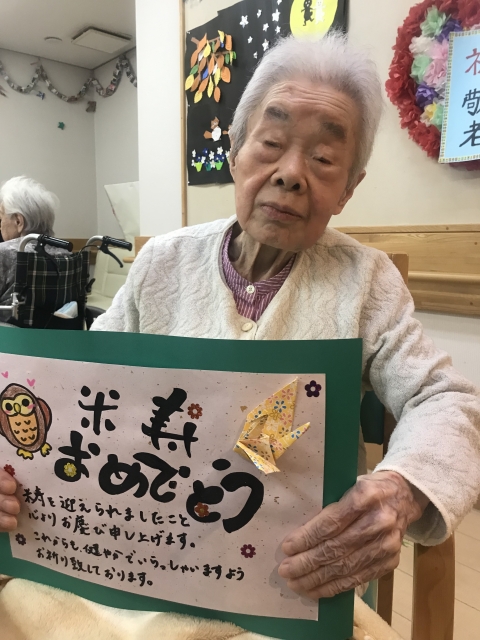 祝
敬老
米寿
おめでとう
米寿を迎えられましたこと
心よりお慶び申し上げます。
これからも、健やかでいらっしゃいますよう
お祈り致しております。